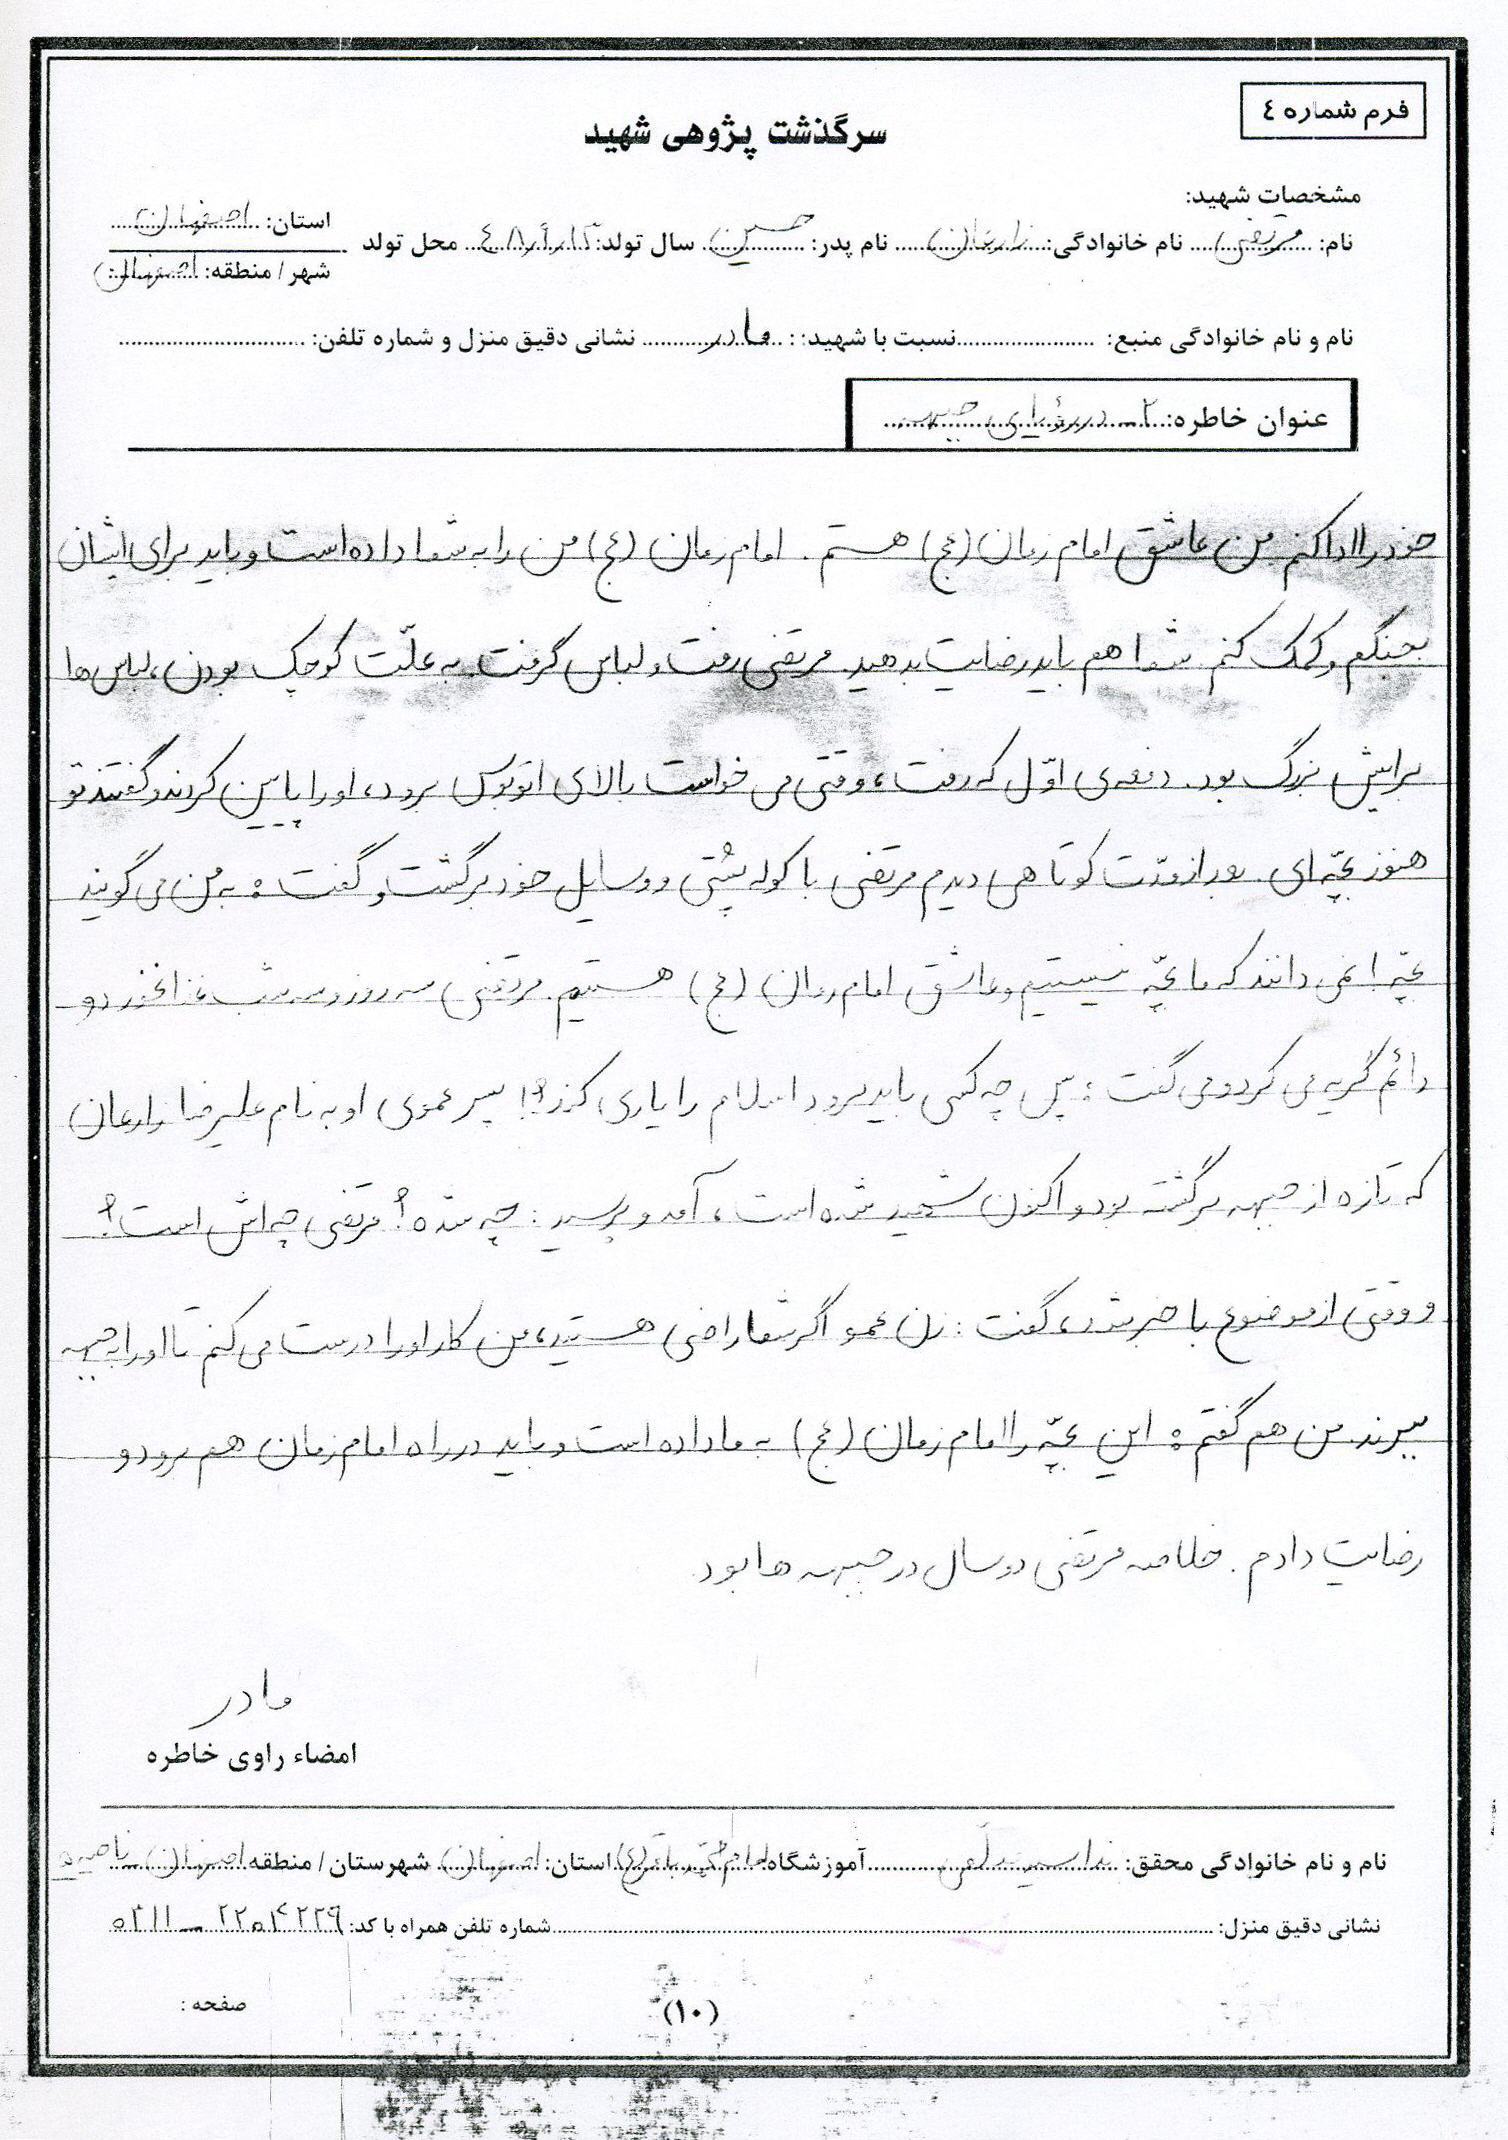 فرم شماره ٤
سرگذشت پژوهی شهید
مشخصات شهید:
نام: مرتضی نام خانوادگی: زارعان نام پدر: حسین سال تولد: محل تولد
استان: اصفهان
شهر / منطقه: اصفهان
نام و نام خانوادگی منبع: نسبت با شهید: : مادر نشانی دقیق منزل و شماره تلفن:
عنوان خاطره: ۲- در رؤیای جبهه
خود را ادا کنم من عاشق امام زمان (عج) هستم. امام زمان (عج) من را به شما داده است و باید برای ایشان
بجنگم و کمک کنم. شما هم باید رضایت بدهید. مرتضی رفت و لباس گرفت. به علّت کوچک بودن، لباس ها
برایش بزرگ بود. دفعه ی اوّل که رفت، وقتی می خواست بالای اتوبوس برود، او را پایین کردند و گفتند تو
هنوز بچّه ای. بعد از مدّت کوتاهی دیدم مرتضی با کوله پُشتی و وسایل خود برگشت و گفت: به من می گویند
بچّه! نمی دانند که ما بچّه نیستیم و عاشق امام زمان (عج) هستیم. مرتضی سه روز و سه شب غذا نخورد و
دائم گریه می کرد و می گفت: پس چه کسی باید برود اسلام را یاری کند؟! پسر عموی او به نام علیرضا زارعان
که تازه از جبهه برگشته بود و اکنون شهید شده است، آمد و پرسید: چه شده؟ مرتضی چه اش است؟
و وقتی از موضوع با خبر شد، گفت: زن عمو اگر شما راضی هستید، من کار او را درست می کنم تا او را به جبهه
ببرند. من هم گفتم: این بچّه را امام زمان (عج) به ما داده است و باید در راه امام زمان هم برود و
رضایت دادم. خلاصه مرتضی دو سال در جبهه ها بود.
مادر
امضاء راوی خاطره
نام و نام خانوادگی محقق: ندا آموزشگاه: امام محمد باقر (ع) استان: اصفهان شهرستان / منطقه اصفهان ناحیه ۵
نشانی دقیق منزل: شماره تلفن همراه با کد:
(۱۰)
صفحه :